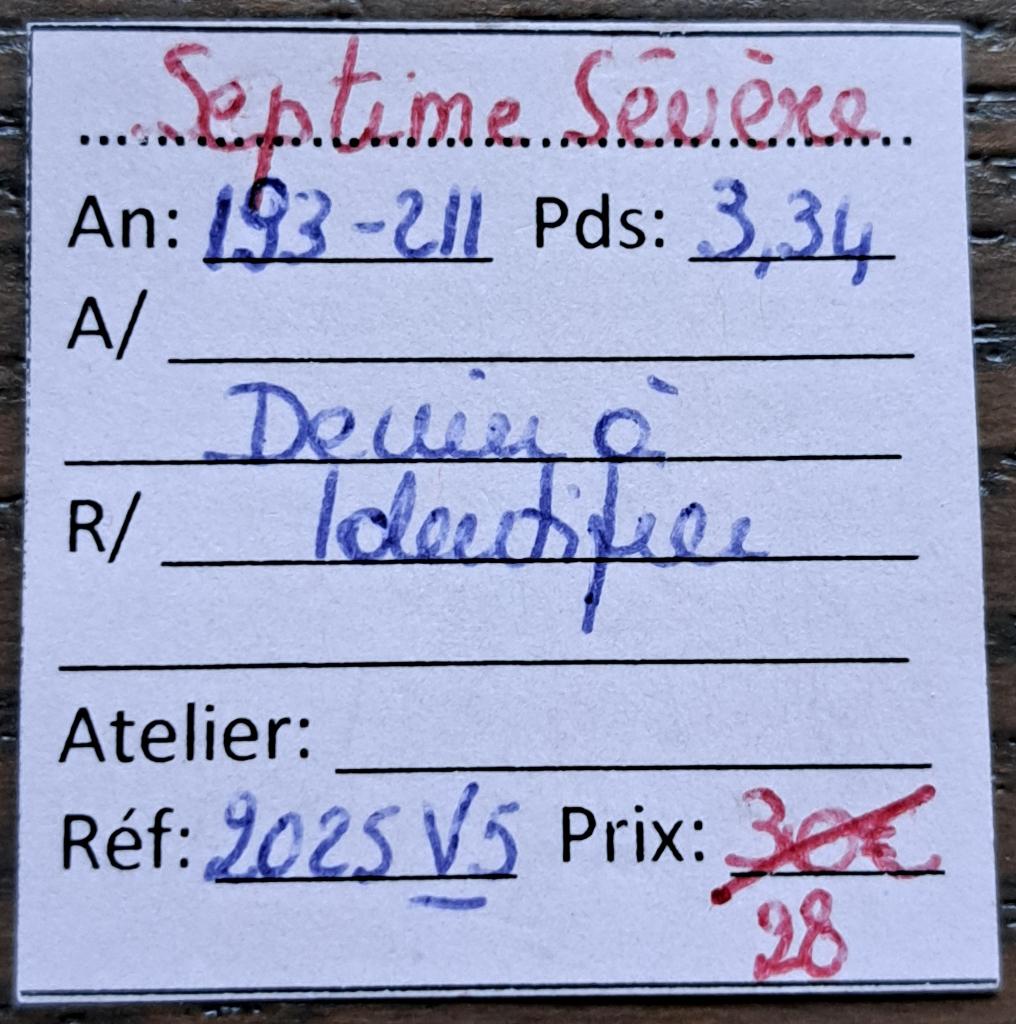 Septime Sévère
An: 193-211 Pds: 3,34
A/
Denier à
R/ Identifier
Atelier:
Réf: 2025 V5 Prix: 30€
28